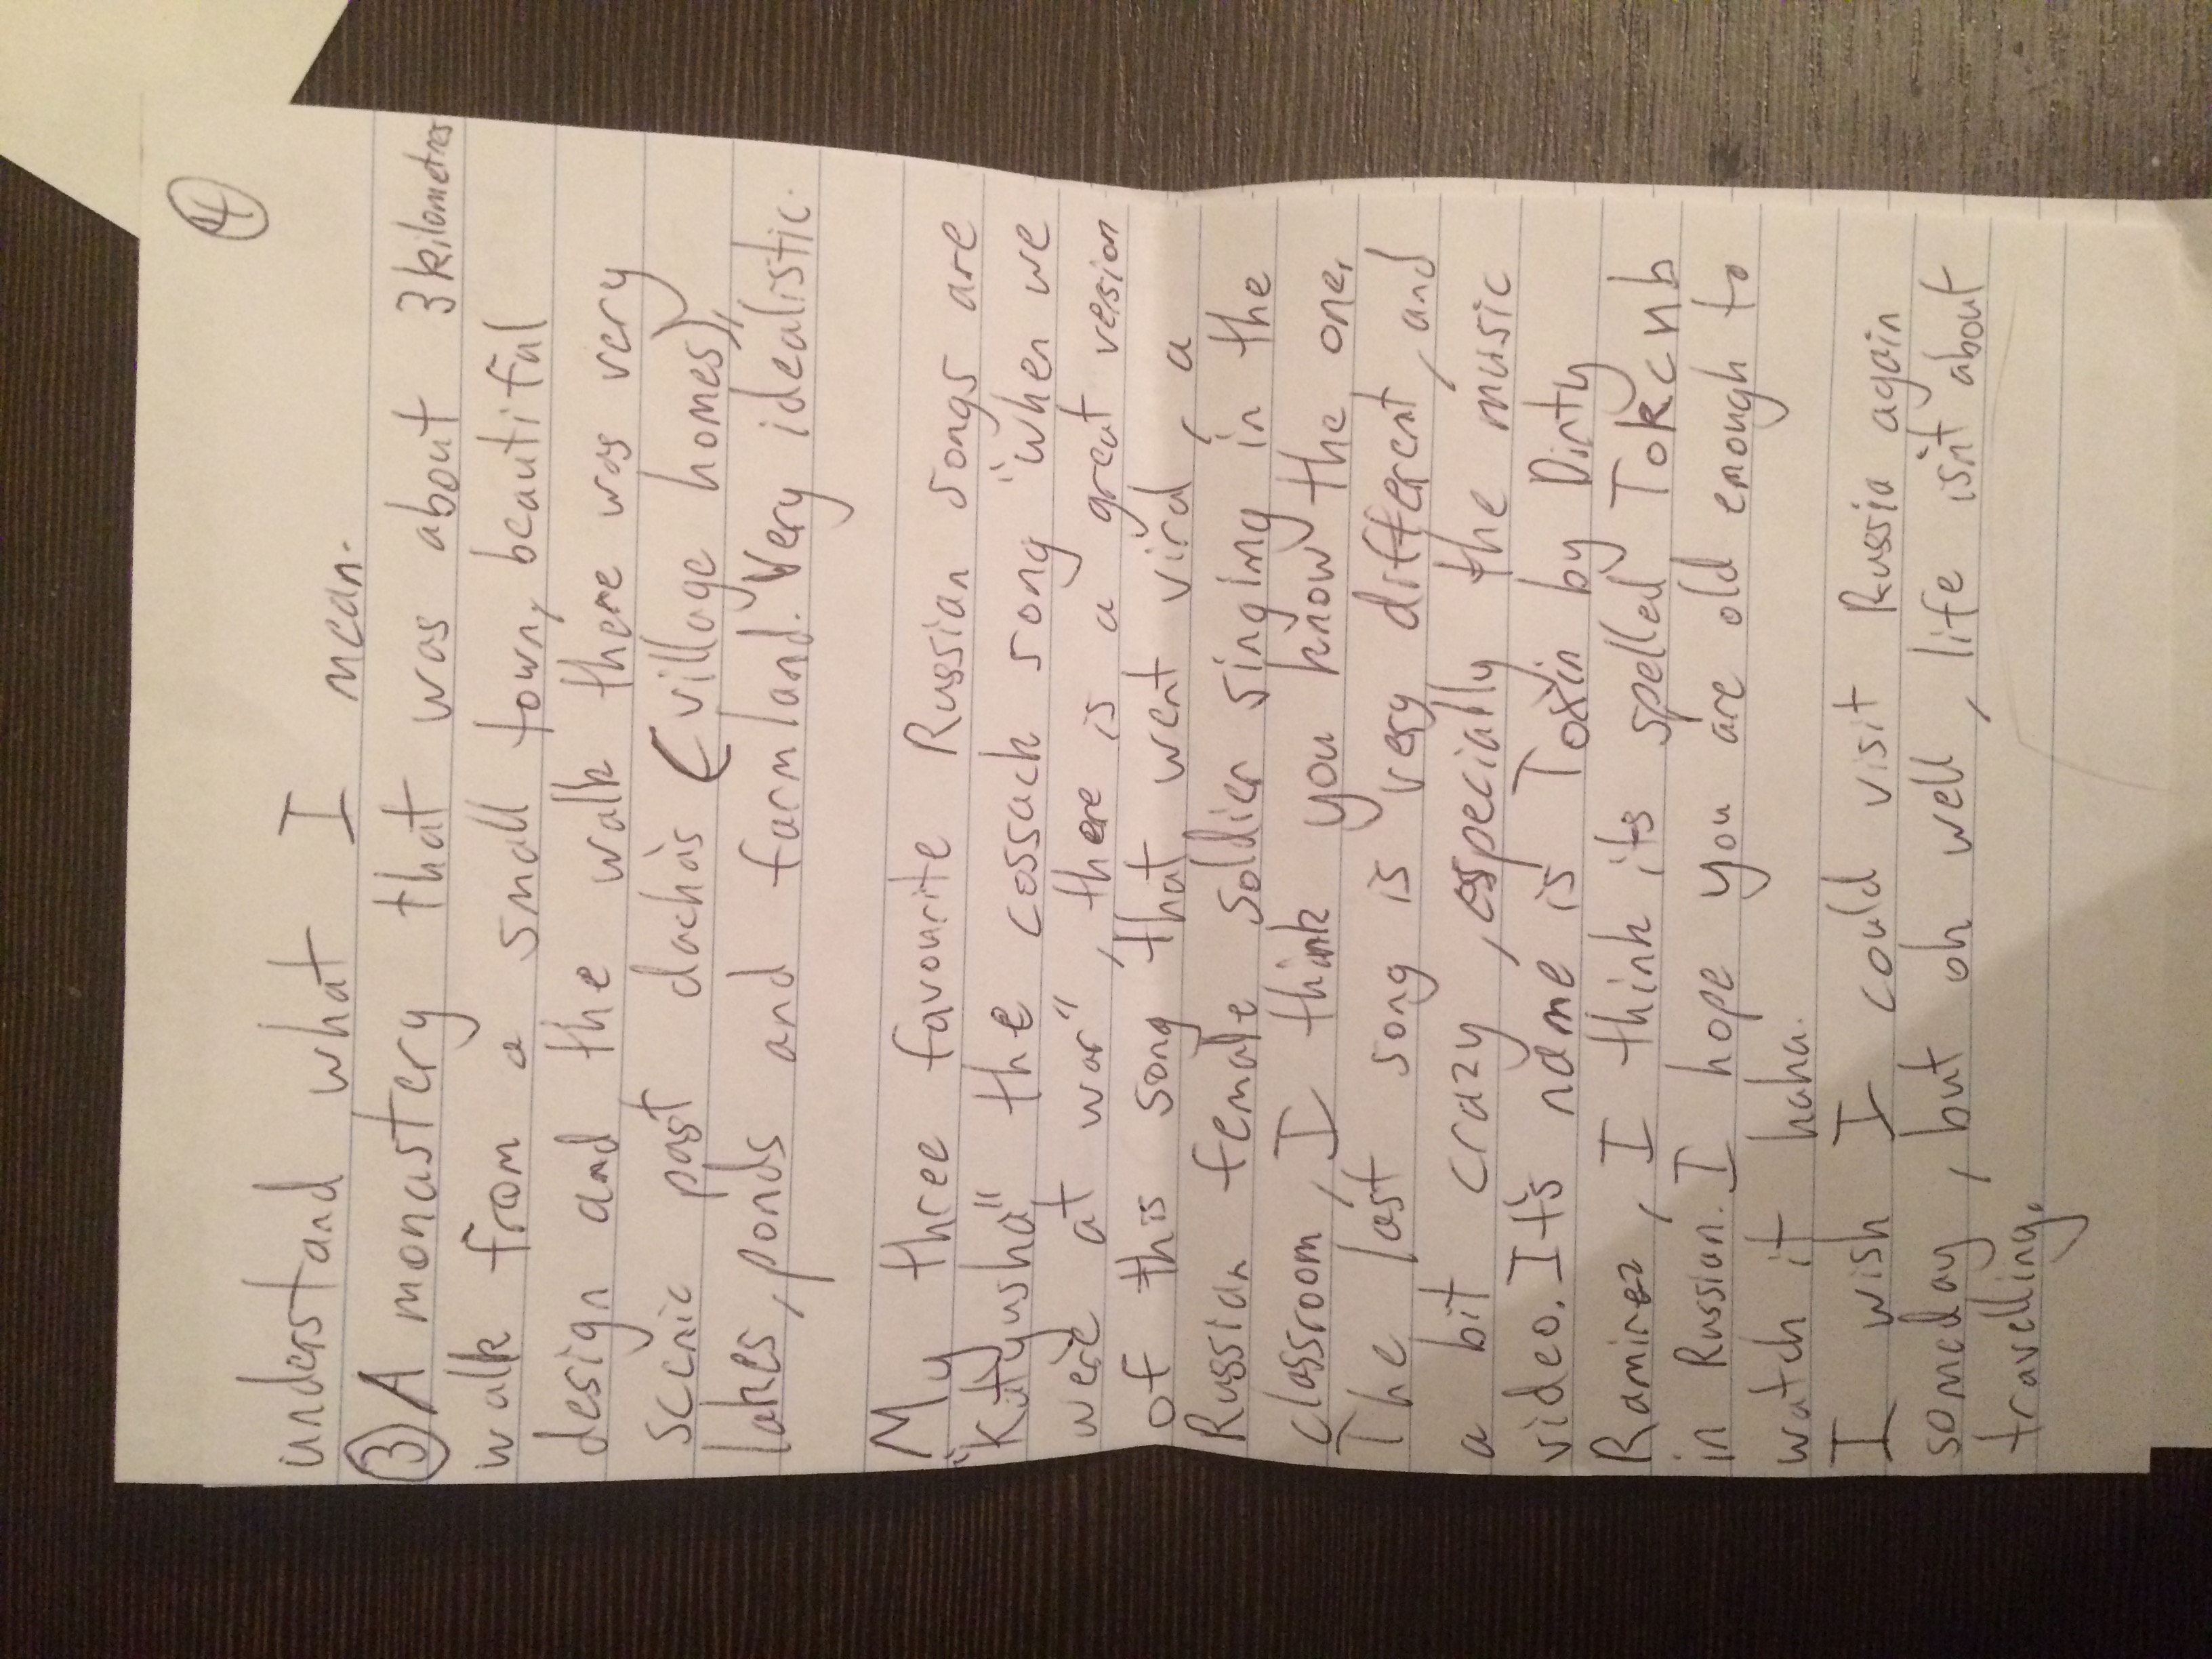 4
understand what I mean.
3 A monastery that was about 3 kilometres
walk from a small town, beautiful
design and the walk there was very
scenic past dachas (village homes),
lakes, ponds and farmland. Very idealistic.
My three favourite Russian songs are
"Katyusha" the cossack song "when we
were at war", there is a great version
of this song, that went viral, a
Russian female soldier singing in the
classroom, I think you know the one,
The last song is very different, and
a bit crazy, especially the music
video. It's name is Toxin by Dirty
Ramirez, I think its spelled Tokcnb
in Russian. I hope you are old enough to
watch it haha.
I wish I could visit Russia again
someday, but oh well, life isn't about
travelling.